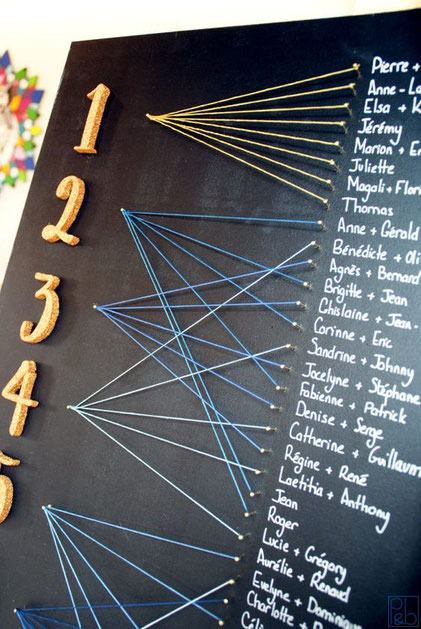 1
2
3
4
5
Pierre +
Anne-La
Elsa + K
Jérémy
Marion + Em
Juliette
Magali + Flor
Thomas
Anne + Gérald
Bénédicte + Oli
Agnès + Bernard
Brigitte + Jean
Ghislaine + Jean-
Corinne + Eric
Sandrine + Johnny
Jocelyne + Stéphane
Fabienne + Patrick
Denise + Serge
Catherine + Guillaum
Régine + René
Laetitia + Anthony
Jean
Roger
Lucie + Grégory
Aurélie + Renaud
Evelyne + Dominique
Charlotte +
Céli